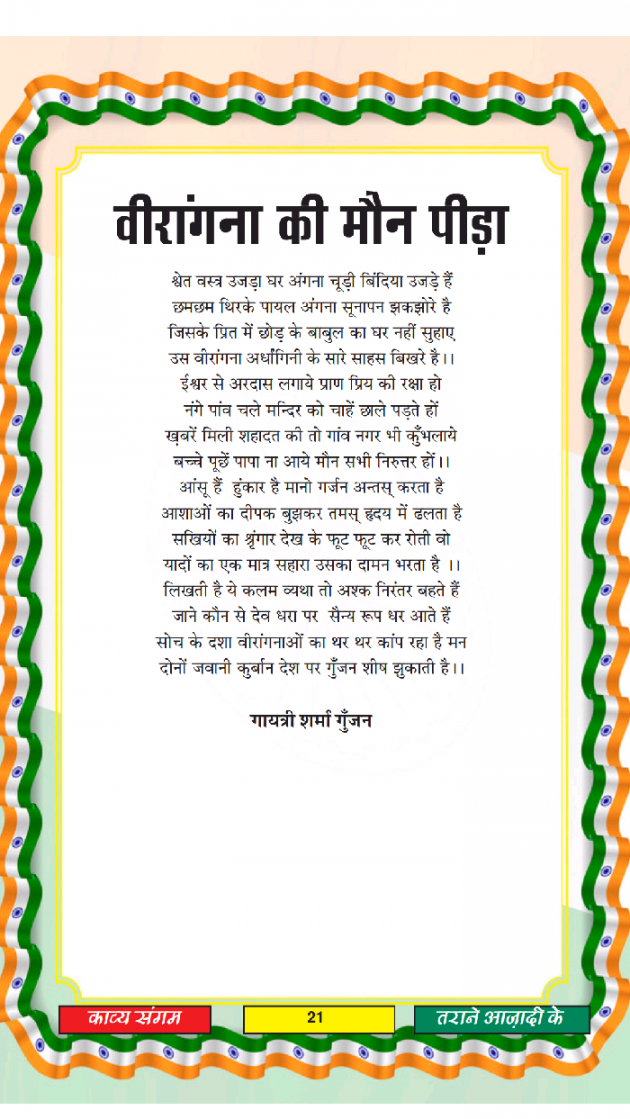 वीरांगना की मौन पीड़ा
श्वेत वस्त्र उजड़ा घर अंगना चूड़ी बिंदिया उजड़े हैं
छमछम थिरके पायल अंगना सूनापन झकझोरे है
जिसके प्रित में छोड़ के बाबुल का घर नहीं सुहाए
उस वीरांगना अर्धांगिनी के सारे साहस बिखरे है।।
ईश्वर से अरदास लगाये प्राण प्रिय की रक्षा हो
नंगे पांव चले मन्दिर को चाहें छाले पड़ते हों
ख़बरें मिली शहादत की तो गांव नगर भी कुँभलाये
बच्चे पूछें पापा ना आये मौन सभी निरुत्तर हों।।
आंसू हैं हुंकार है मानो गर्जन अन्तस् करता है
आशाओं का दीपक बुझकर तमस् हृदय में ढलता है
सखियों का श्रृंगार देख के फूट फूट कर रोती वो
यादों का एक मात्र सहारा उसका दामन भरता है ।।
लिखती है ये कलम व्यथा तो अश्क निरंतर बहते हैं
जाने कौन से देव धरा पर सैन्य रूप धर आते हैं
सोच के दशा वीरांगनाओं का थर थर कांप रहा है मन
दोनों जवानी कुर्बान देश पर गुँजन शीष झुकाती है।।
गायत्री शर्मा गुँजन
काव्य संगम
21
तराने आज़ादी के